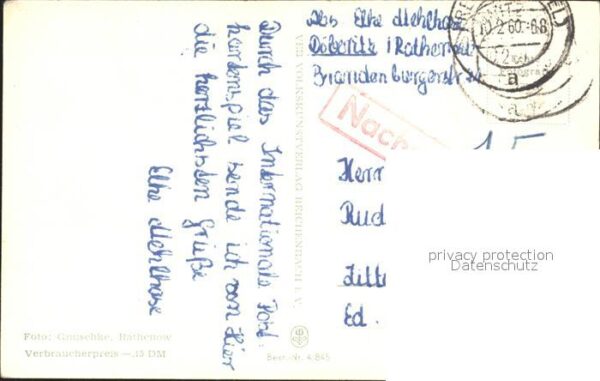 Abs Elke Mehlhase
Döberitz / Rathenow
Brandenburgerstr
10.2.60.-6-8
a
Nach
15
Herr
Rud
Zitt
Ed.
Durch das Internationale Post-
kartenspiel sende ich von hier
die herzlichsten Grüße
Elke Mehlhase
VEB VOLKSKUNSTVERLAG REICHENBACH I. V.
Foto: Gauschke, Rathenow
Verbraucherpreis —.15 DM
Best.-Nr. 4 845
privacy protection
Datenschutz